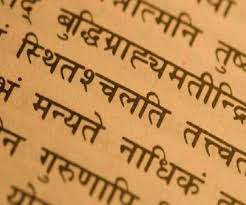 त्मनि
बुद्धिग्राह्यमतीन्द्रि
स्थितश्चलति तत्त्वत
भं मन्यते नाधिकं
न गुरुणापि